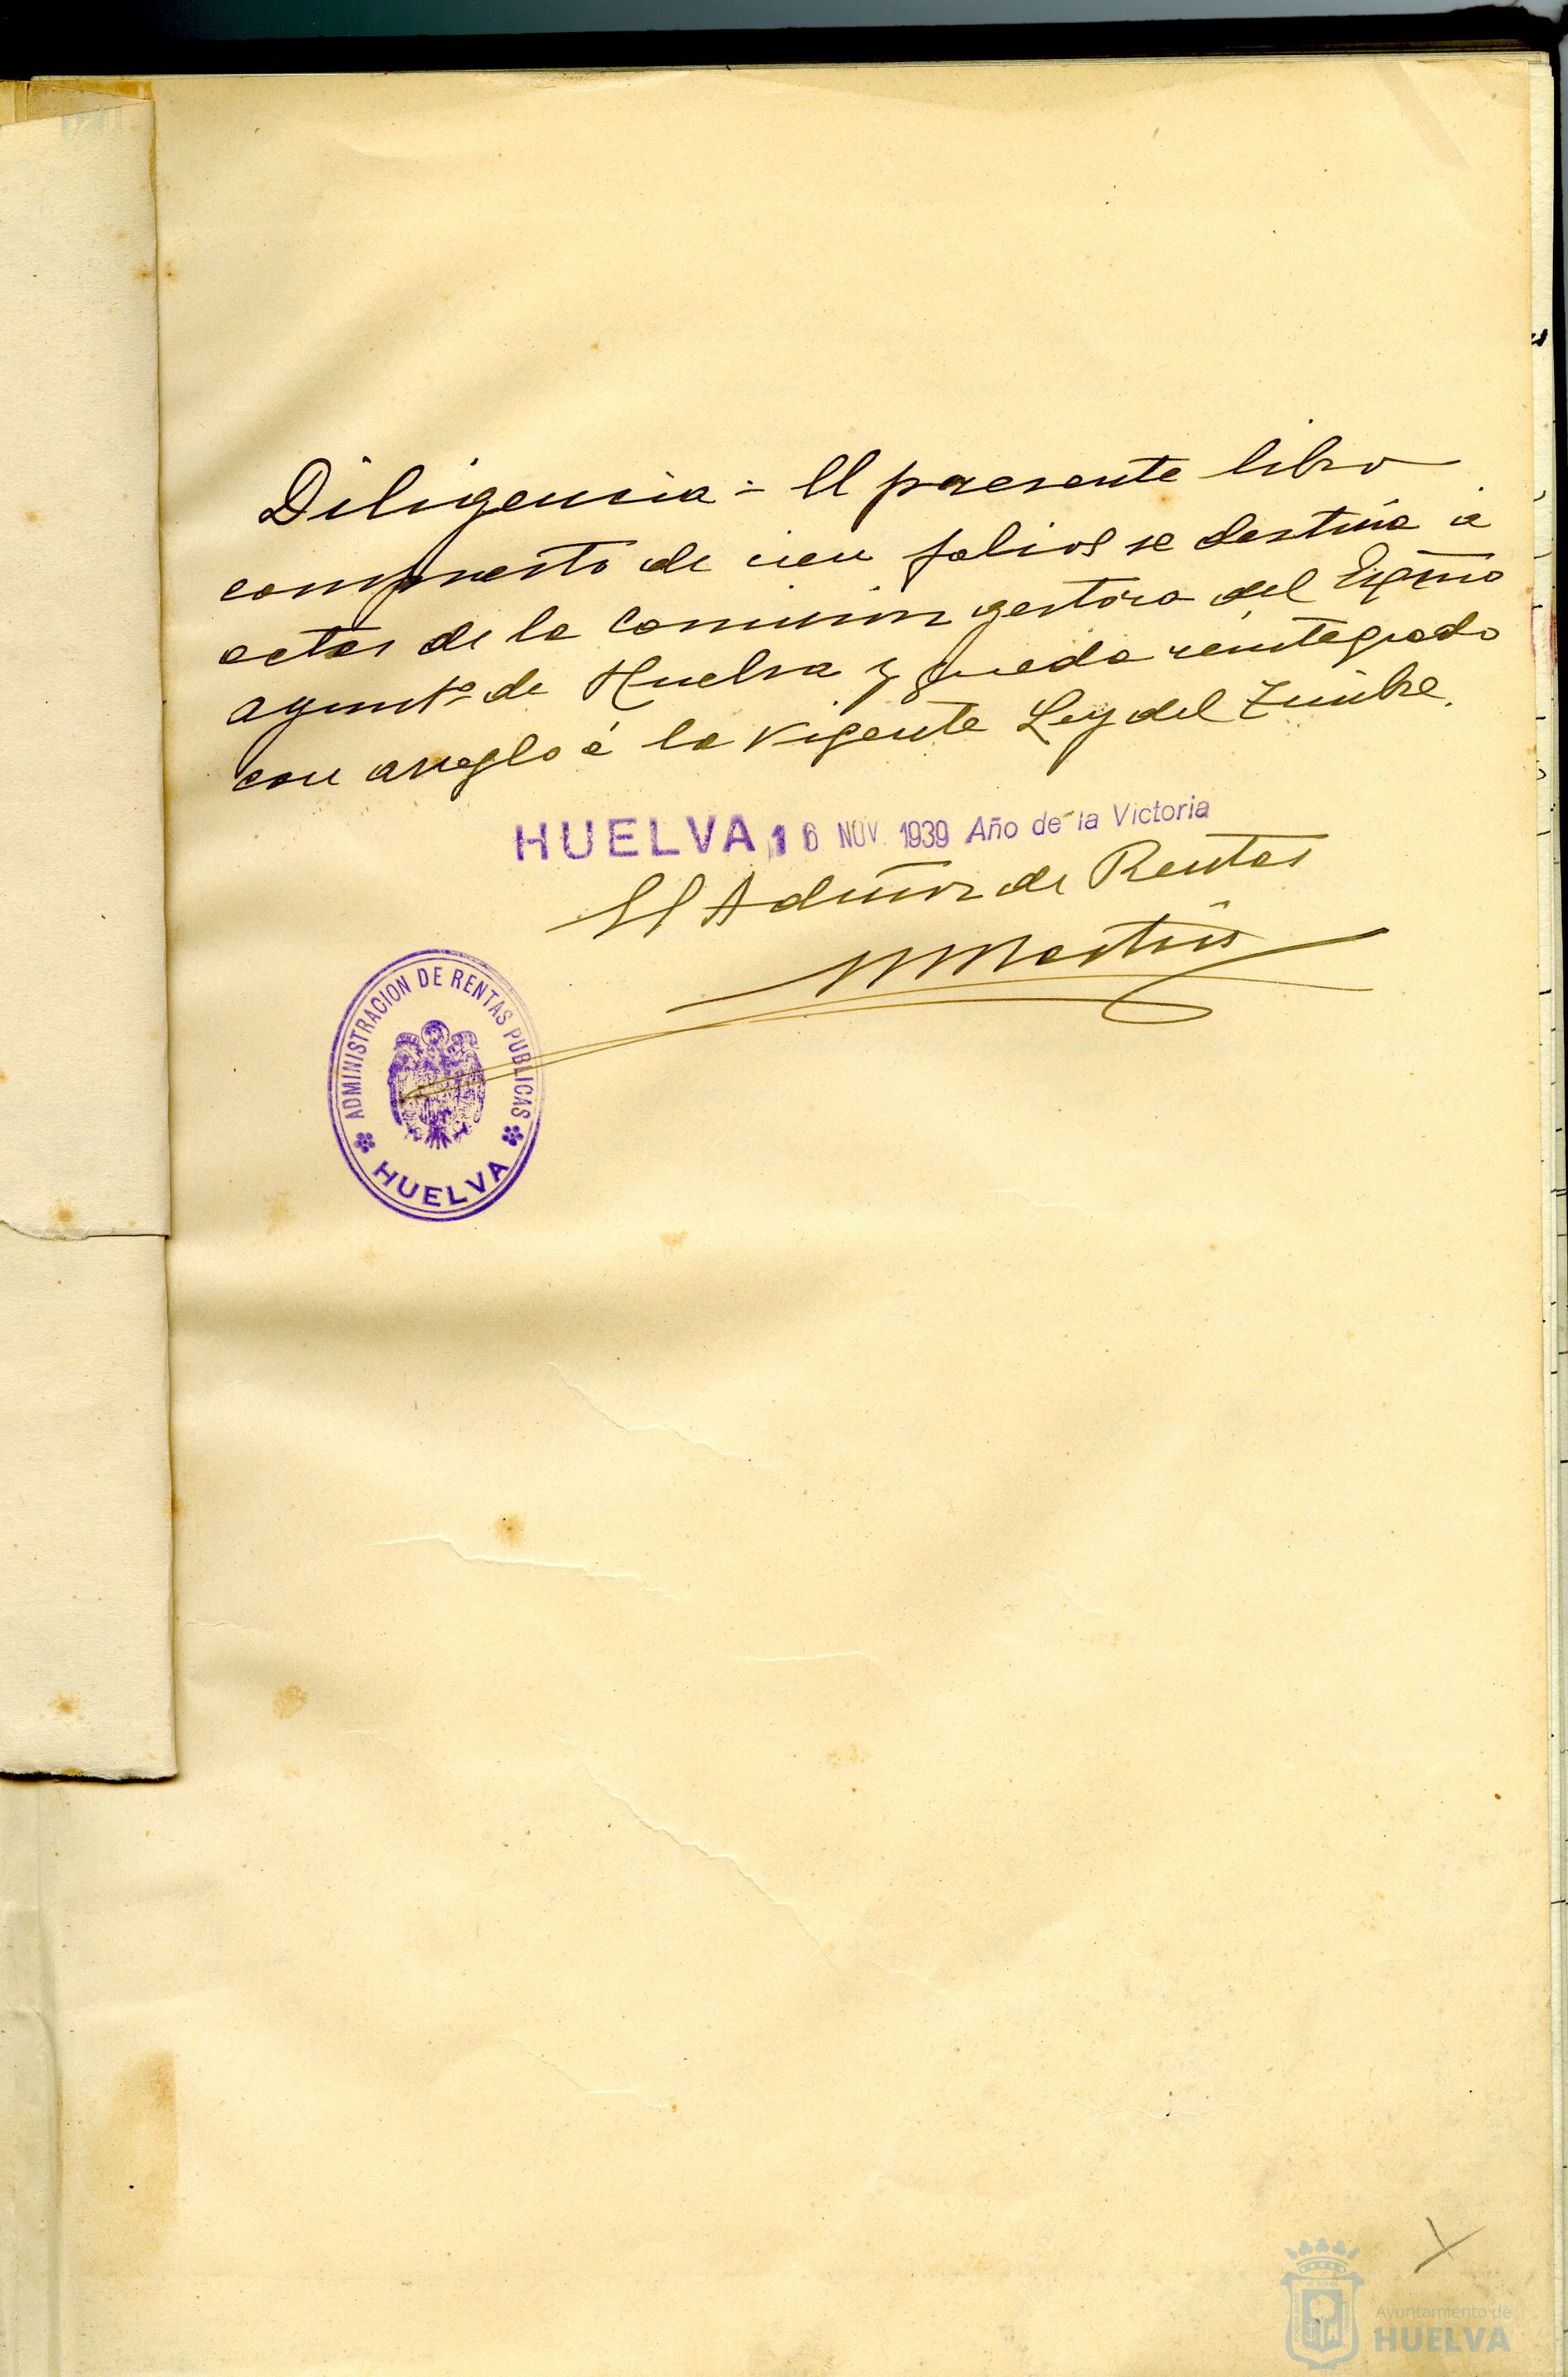 Diligencia = El presente libro
compuesto de cien folios se destina a
actas de la Comision gestora del Excmo
Ayuntº de Huelva y queda reintegrado
con arreglo á la vigente Ley del Timbre.
HUELVA, 16 NOV. 1939 Año de la Victoria
El Admor de Rentas
Martin
ADMINISTRACION DE RENTAS PUBLICAS
HUELVA
Ayuntamiento de
HUELVA